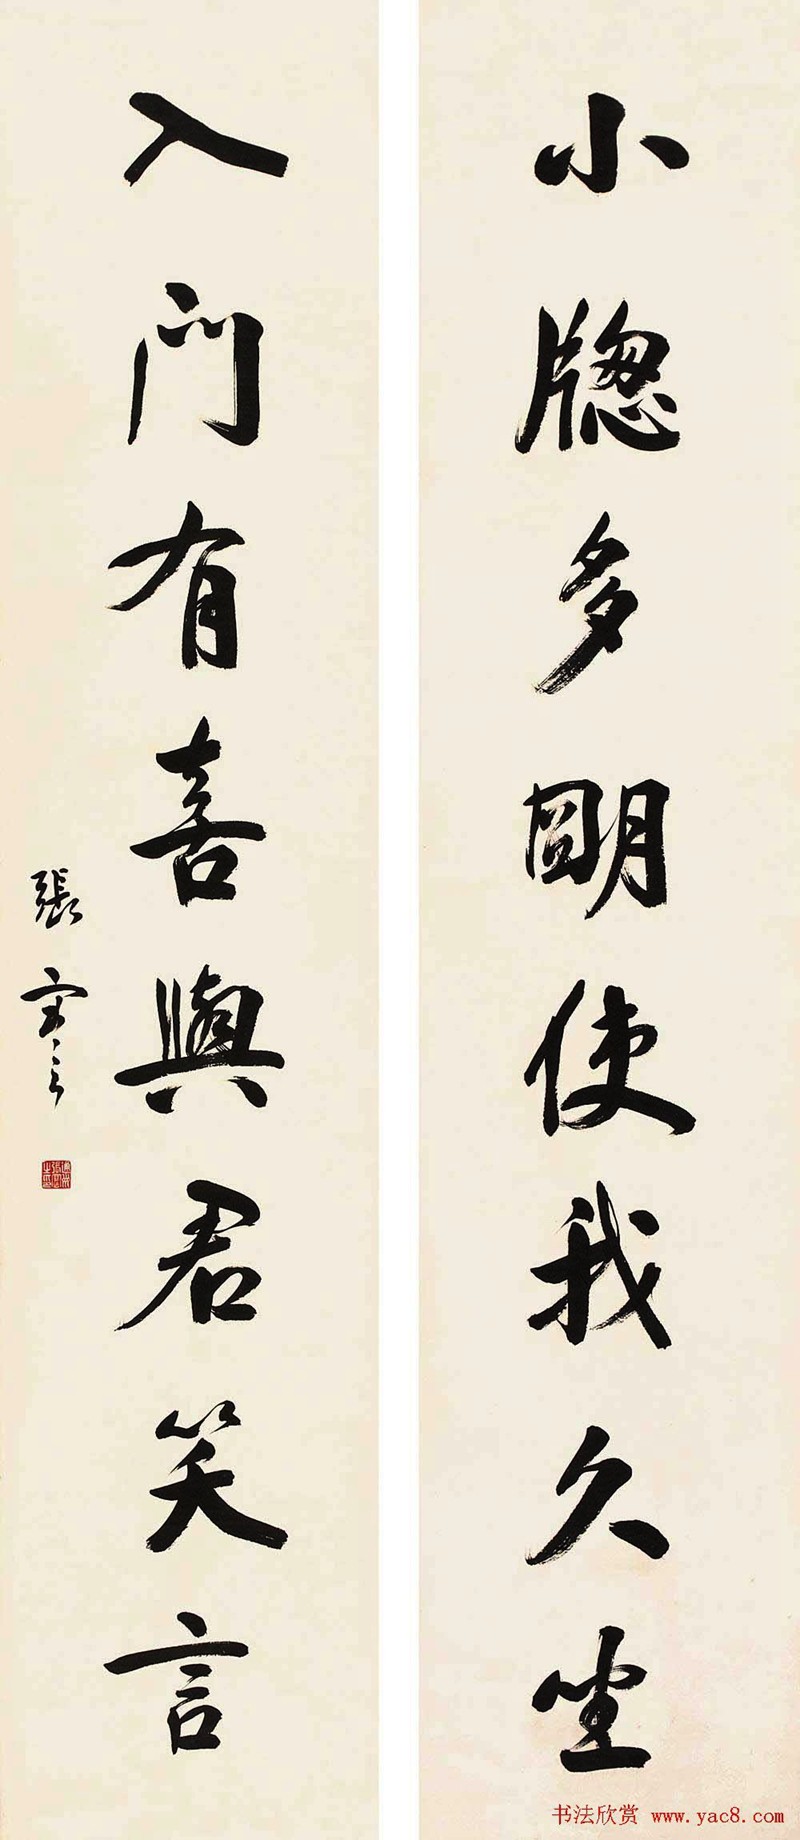 小牎多朙使我久坐
入門有喜與君笑言
張謇
书法欣赏 www.yac8.com